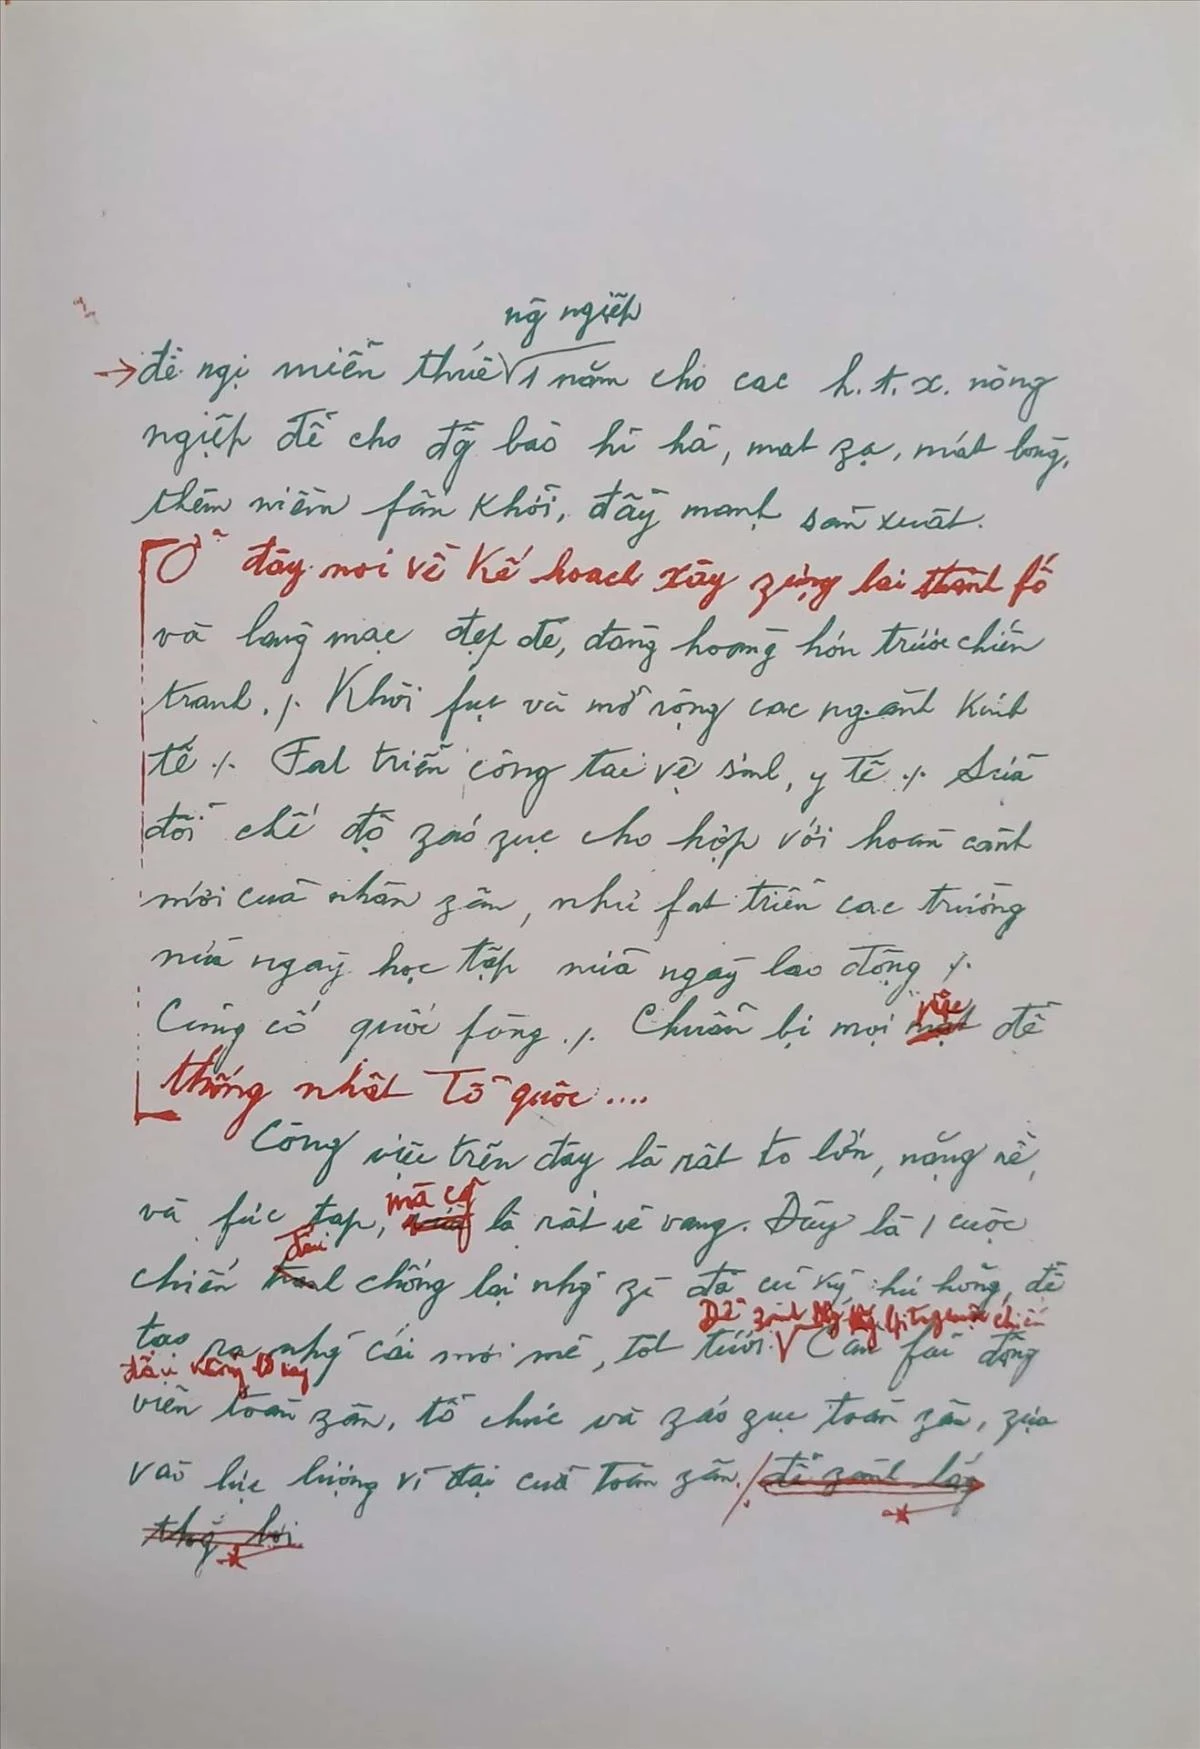 ng̃ ngiệp
→ đề ngị miễn thuế √ 1 năm cho các h.t.x. nông
ngiệp để cho đg̀ bào hỉ hả, mát zạ, mát lòng,
thêm niềm fấn khởi, đẩy mạnh sản xuất.
Ở đây nói về kế hoạch xây zựng lại thành fố
và làng mạc đẹp đẽ, đàng hoàng hơn trước chiến
tranh ./. Khôi fục và mở rộng các ngành kinh
tế ./. Fát triển công tác vệ sinh, y tế ./. Sửa
đổi chế độ záo zục cho hợp với hoàn cảnh
mới của nhân zân, như fát triển các trường
nửa ngày học tập nửa ngày lao động ./.
Củng cố quốc fòng ./. Chuẩn bị mọi việc để
thống nhất Tổ quốc ....
Công việc trên đây là rất to lớn, nặng nề,
và fức tạp, mà cg̃ là rất vẻ vang. Đây là 1 cuộc
chiến đấu chống lại nhg̃ gì đã cũ kỹ, hư hỏng, để
tạo ra nhg̃ cái mới mẻ, tốt tươi. √ Cần fải động
Để zành thắng lợi trong cuộc chiến
đấu khổng lồ này
viên toàn zân, tổ chức và záo zục toàn zân, zựa
vào lực lượng vĩ đại của toàn zân. để zành lấy
thắg lợi.